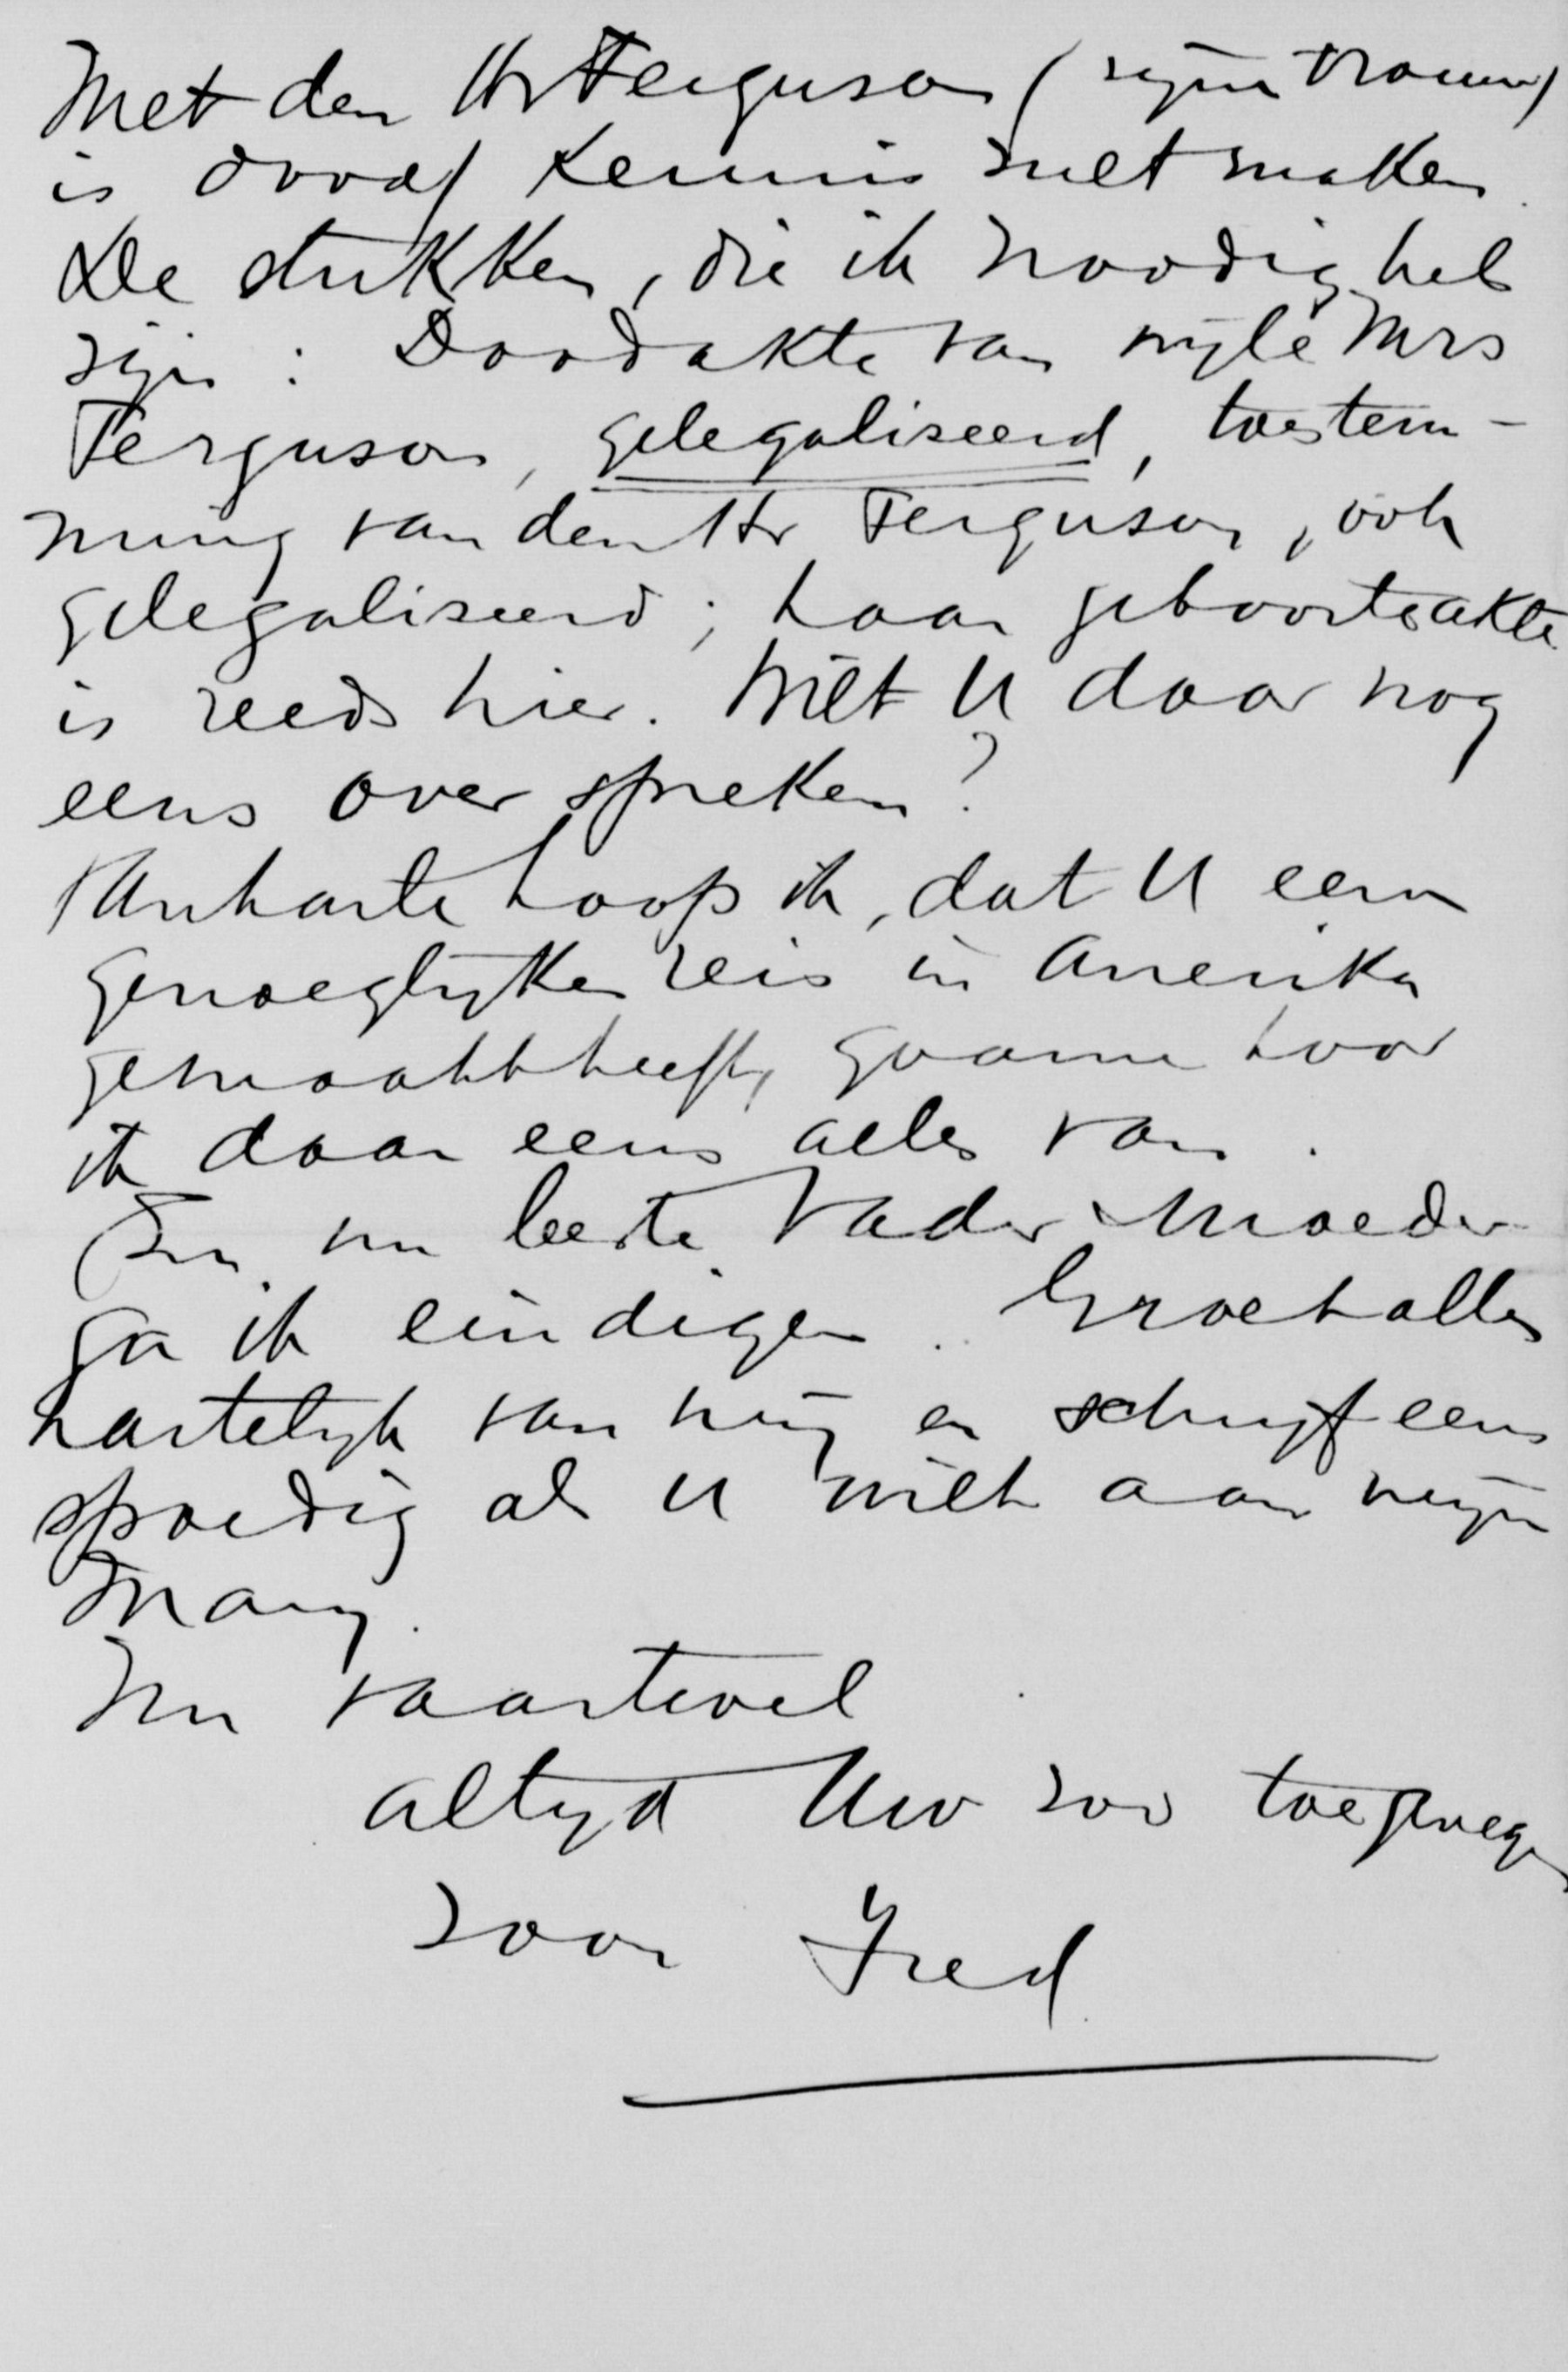 Met den Hr Ferguson (zijn vrouw)
is dood) kennis met maken.
De stukken, die ik noodig heb
zijn : Doodakte van wijle Mrs
Ferguson, gelegaliseerd, toestem-
ming van den Hr Ferguson, ook
gelegaliseerd; haar geboorteakte
is reeds hier. Wilt U daar nog
eens over spreken?
Van harte hoop ik, dat U een
genoeglijke reis in Amerika
gemaakt heeft, gaarne hoor
ik daar eens alles van.
En nu beste Vader Moeder
ga ik eindigen. Groet allen
hartelijk van mij en schrijf eens
spoedig als U wilt aan mijn
Mary.
Nu vaartwel
altijd Uw zoo toegenegen
zoon Fred